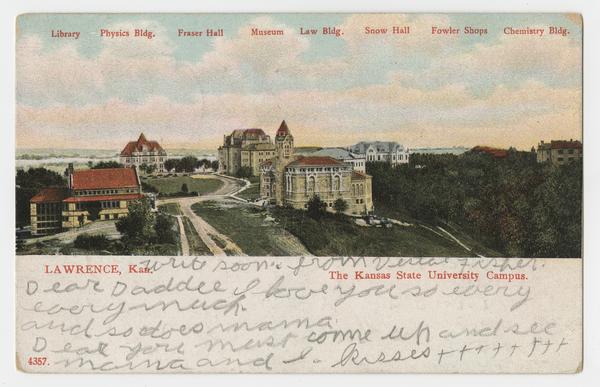 Library Physics Bldg. Fraser Hall Museum Law Bldg. Snow Hall Fowler Shops Chemistry Bldg.
LAWRENCE, Kan.
The Kansas State University Campus.
write soon. from Vesta Fisher.
Dear Daddee I love you so every
every much
and so does mama
Dear you must come up and see
mama and I. kisses + + + + + + +
4357.